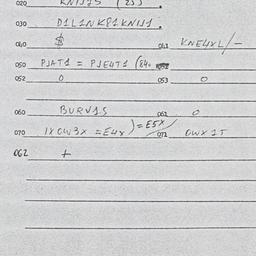 020 KNIJ1S (25)
030 D1L1NKP1KNIJ1.
040 $ 041 KNE4XL/-
050 PJAT1 = PJE4T1 (84.
052 0 053 0
060 BURV1S 062 0
070 1X0W3X = E4X) = E5X/ 072 0WX1T
062 +